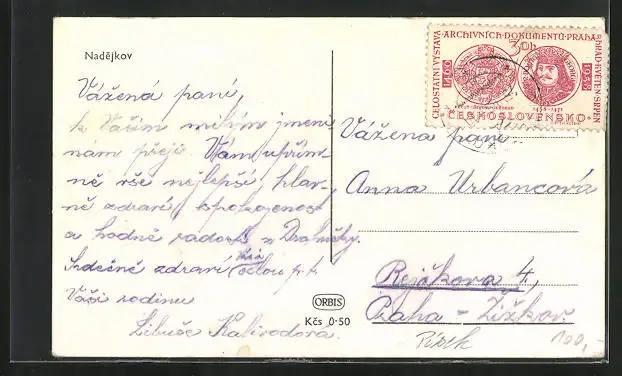 Nadějkov
Vážená paní,
k Vašim milým jmeni-
nám přeji Vám upřím-
ně vše nejlepší, hlav-
ně zdraví, spokojenost
a hodně radosti z Drahušky.
Srdečně zdraví celou
Vaši rodinu
Libuše
CELOSTÁTNÍ VÝSTAVA ARCHIVNÍCH DOKUMENTŮ-PRAHA HRAD-KVĚTEN-SRPEN
30h
1958
1458-1471
ČESKOSLOVENSKO
Vážená paní
Anna Urbancová
4,
Praha - Žižkov.
Písek
100,-
ORBIS
Kčs 0·50